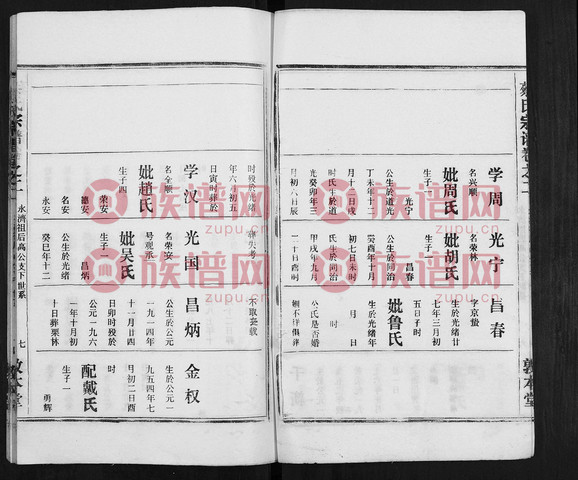 蔡氏宗谱卷之二
学周
名兴顺
妣周氏
生子一
光宁
公生於道光
丁未年十二
月十二日戌
时氏生於道
光癸卯年三
月初六日辰
时殁於光绪
年六月初五
日寅时葬於
光宁
名荣林
妣胡氏
生子一
昌春
公生於同治
癸酉年十月
初七日未时
氏生於同治
甲戌年九月
二十日酉时
葬失考
昌春
字京蛰
生於光绪廿
七年三月初
五日子时
妣鲁氏
生於光绪年
月 日 时
公氏是否婚
姻不详俱葬
敦本堂
学汉
名全顺
妣赵氏
生子四
荣安
德安
名安
永安
光国
名荣安
号观承
妣吴氏
生子一
昌炳
公生於光绪
癸巳年十二
昌炳
公生於公元
一九一四年
十一月廿四
日卯时殁於
公元一九六
一年十月初
十日葬栗林
金权
生於公元一
九五四年七
月初二日酉
时
配戴氏
生子一
勇辉
永济祖后高公支下世系
七
敦本堂
族谱网
zupu.cn